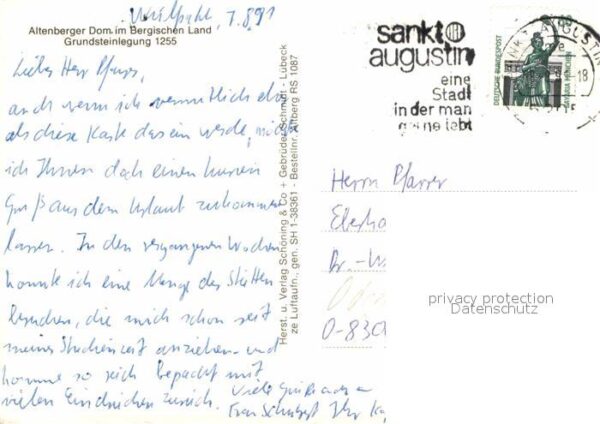 7.8.91
Altenberger Dom im Bergischen Land
Grundsteinlegung 1255
Lieber Herr Pfarrer,
auch wenn ich vermutlich eher
als diese Karte da sein werde, möchte
ich Ihnen doch einen kurzen
Gruß aus dem Urlaub zukommen
lassen. In den vergangenen Wochen
konnte ich eine Menge der Stätten
besuchen, die mich schon seit
meiner Studienzeit anziehen - und
komme so reich bepackt mit
vielen Eindrücken zurück. Viele Grüße auch an
Frau Schubert Ihr
Herst. u. Verlag Schöning & Co + Gebrüder Schmidt - Lübeck
ze Luftaufn., gen. SH 1-38361 - Bestellnr. Altberg RS 1087
sankt
augustin
eine
Stadt
in der man
gerne lebt
DEUTSCHE BUNDESPOST
BAVARIA MÜNCHEN
60
SANKT AUGUSTIN
-18
Herrn Pfarrer
Eberha
Dr.-W
O-830
privacy protection
Datenschutz